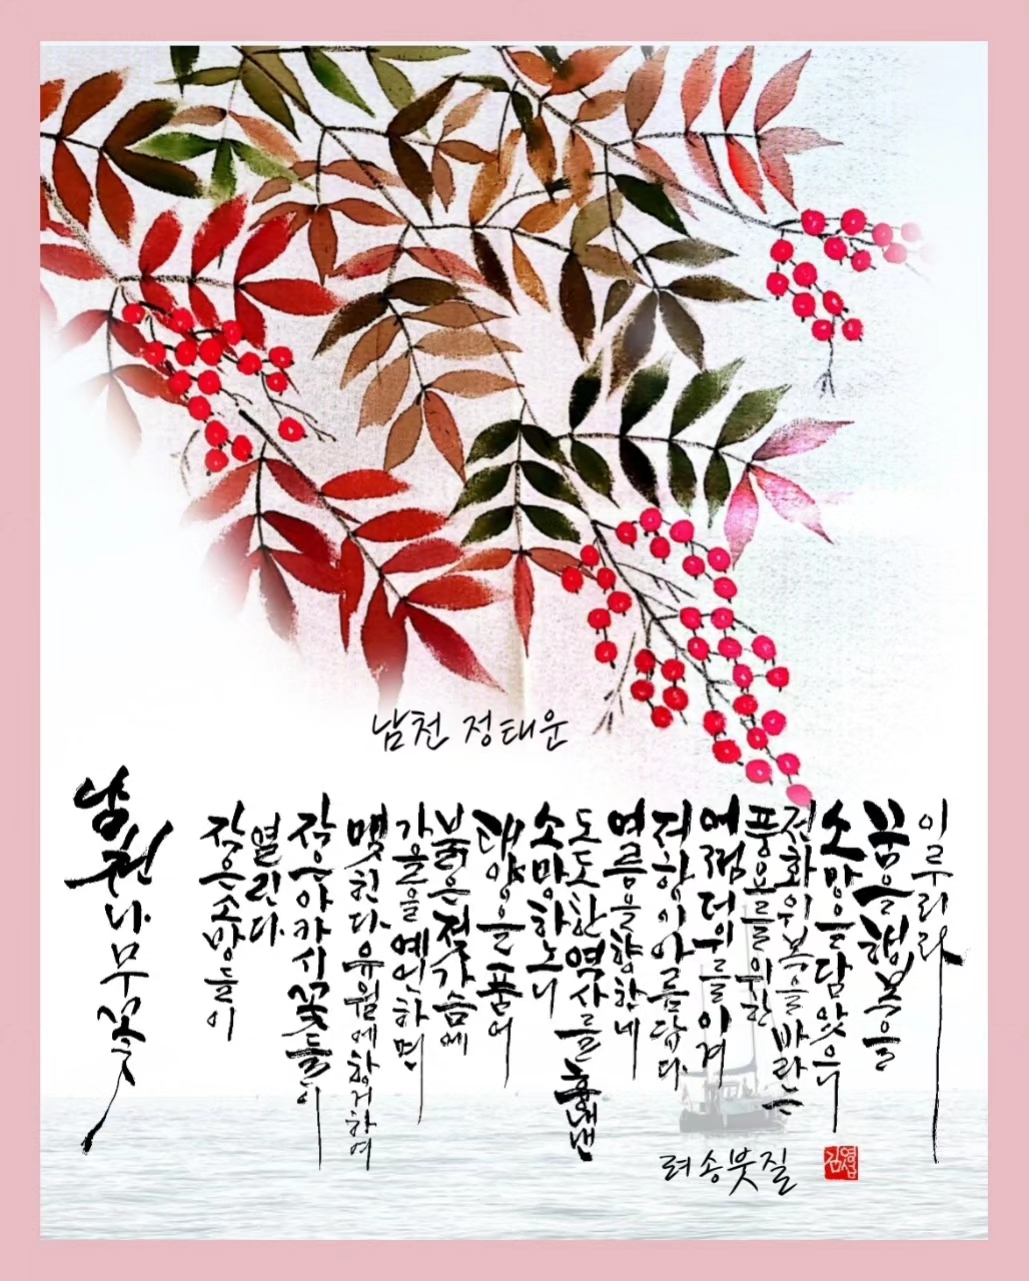 남천 정태운
남천나무꽃
작은소망들이
열린다.
작은아카시꽃들이
맺힌다.유월에항거하여
가을을예언하며
붉은젖가슴에
태양을품어
소망하노니
도도한역사를흉내낸
여름을향한네
저항이아름답다.
더위를이겨
풍요를위한
전화위복을바라는
소망을담았으니
꿈을행복을
이루리라
려송붓질